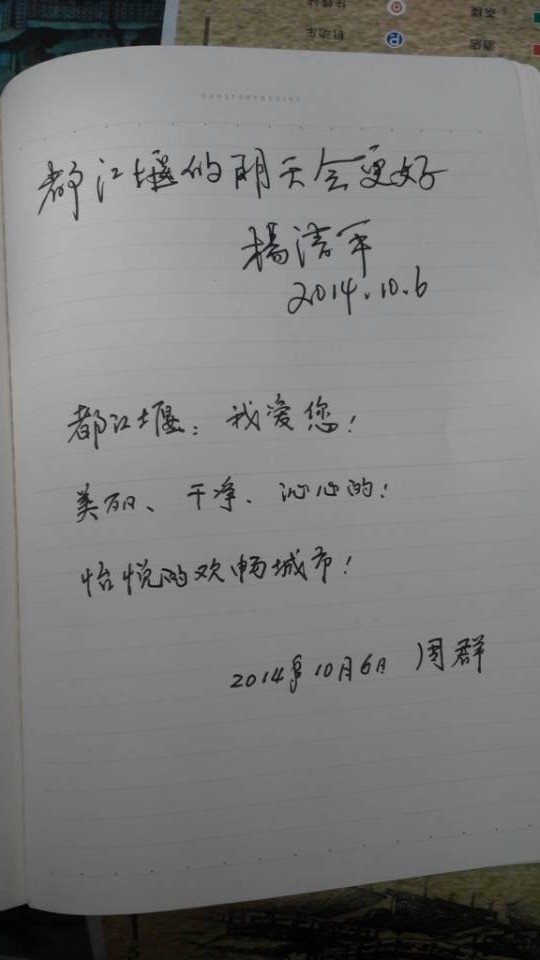 都江堰的明天会更好
楊洁平
2014.10.6
都江堰：我爱您！
美丽、干净、沁心的！
怡悦的欢畅城市！
2014年10月6日 周群